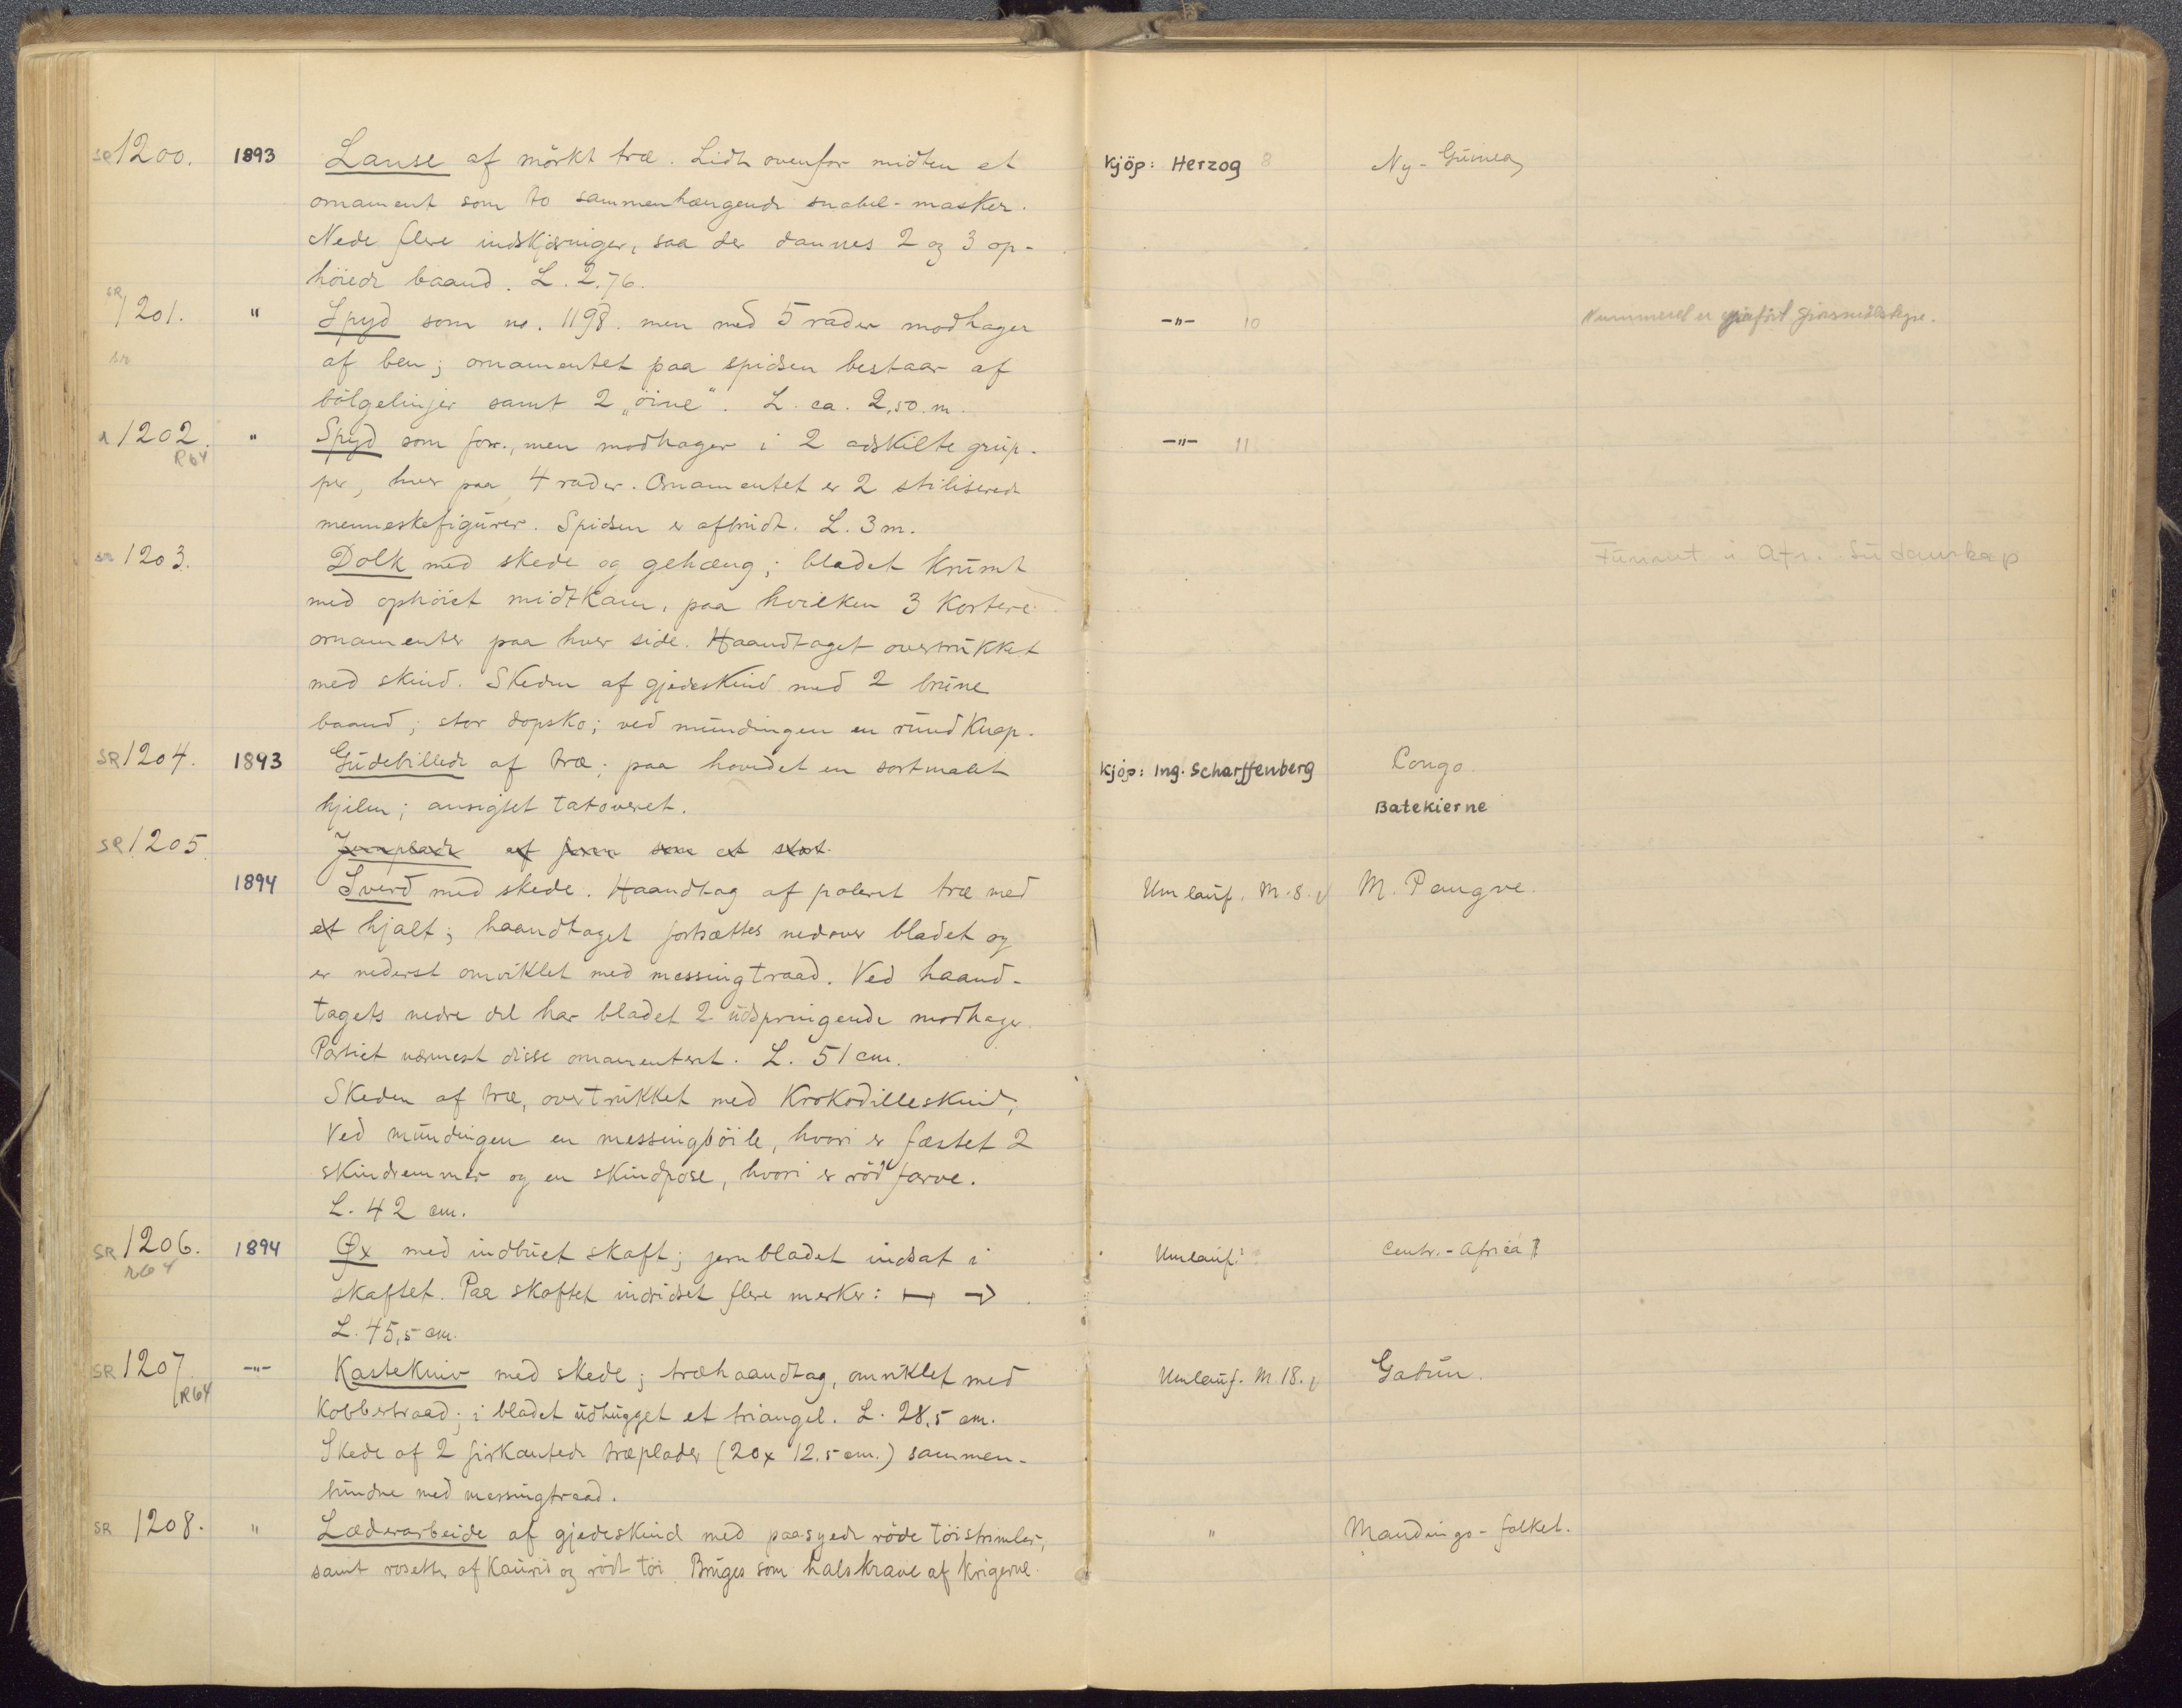 SR 1200. 1893 Lanse af mörkt træ. Lidt ovenfor midten et kjöp: Herzog 8 Ny-Guinea
ornament som to sammenhængende snabel-masker.
Nede flere indskjæringer, saa der dannes 2 og 3 op-
höiede baand. L. 2.76.
SR 1201. " Spyd som no. 1198. men med 5 rader modhager -"- 10 Nummeret er
SR af ben; ornamentet paa spidsen bestaar af
bölgelinjer samt 2 „öine“. L. ca. 2,50 m.
1202. " Spyd som forr., men modhager i 2 adskilte grup- -"- 11
R64 per, hver paa 4 rader. Ornamentet er 2 stiliserede
menneskefigurer. Spidsen er afbrudt. L. 3 m.
SR 1203. Dolk med skede og gehæng; bladet krumt Funnet i Afr. Sudanskap
med ophöiet midtkam, paa hvilken 3 kortere
ornamenter paa hver side. Haandtaget overtrukket
med skind. Skeden af gjedeskind med 2 brune
baand; stor dopsko; ved mundingen en rund knap.
SR 1204. 1893 Gudebillede af træ; paa hovedet en sortmalet kjöp: Ing. Scharffenberg Congo.
hjelm; ansigtet tatoveret. Batekierne
SR 1205. Jernplade af jern som et stort
1894 Sverd med skede. Haandtag af poleret træ med Umlauf. M. 8. M. Pangve.
et hjalt; haandtaget fortsættes nedover bladet og
er nederst omviklet med messingtraad. Ved haand-
tagets nedre del har bladet 2 udspringende modhager.
Partiet nærmest disse ornamentert. L. 51 cm.
Skeden af træ, overtrukket med Krokodilleskind,
Ved mundingen en messingböile, hvori er fæstet 2
skindremmer og en skindpose, hvori er röd farve.
L. 42 cm.
SR 1206. 1894 Øx med indbuet skaft; jernbladet indsat i Umlauf: Centr.-Africa?
R64 skaftet. Paa skaftet indridset flere merker: ⟼ →
L. 45,5 cm.
SR 1207. -"- Kastekniv med skede; træhaandtag, omviklet med Umlauf. M 18. Gabun.
R64 Kobbertraad; i bladet udhugget et triangel. L. 28,5 cm.
Skede af 2 firkantede træplader (20x12.5 cm.) sammen-
bundne med messingtraad.
SR 1208. " Læderarbeide af gjedeskind med paasyede röde töistrimler, " Mandingo-folket.
samt rosetter af Kauris og rödt töi. Bruges som halskrave af krigerne.